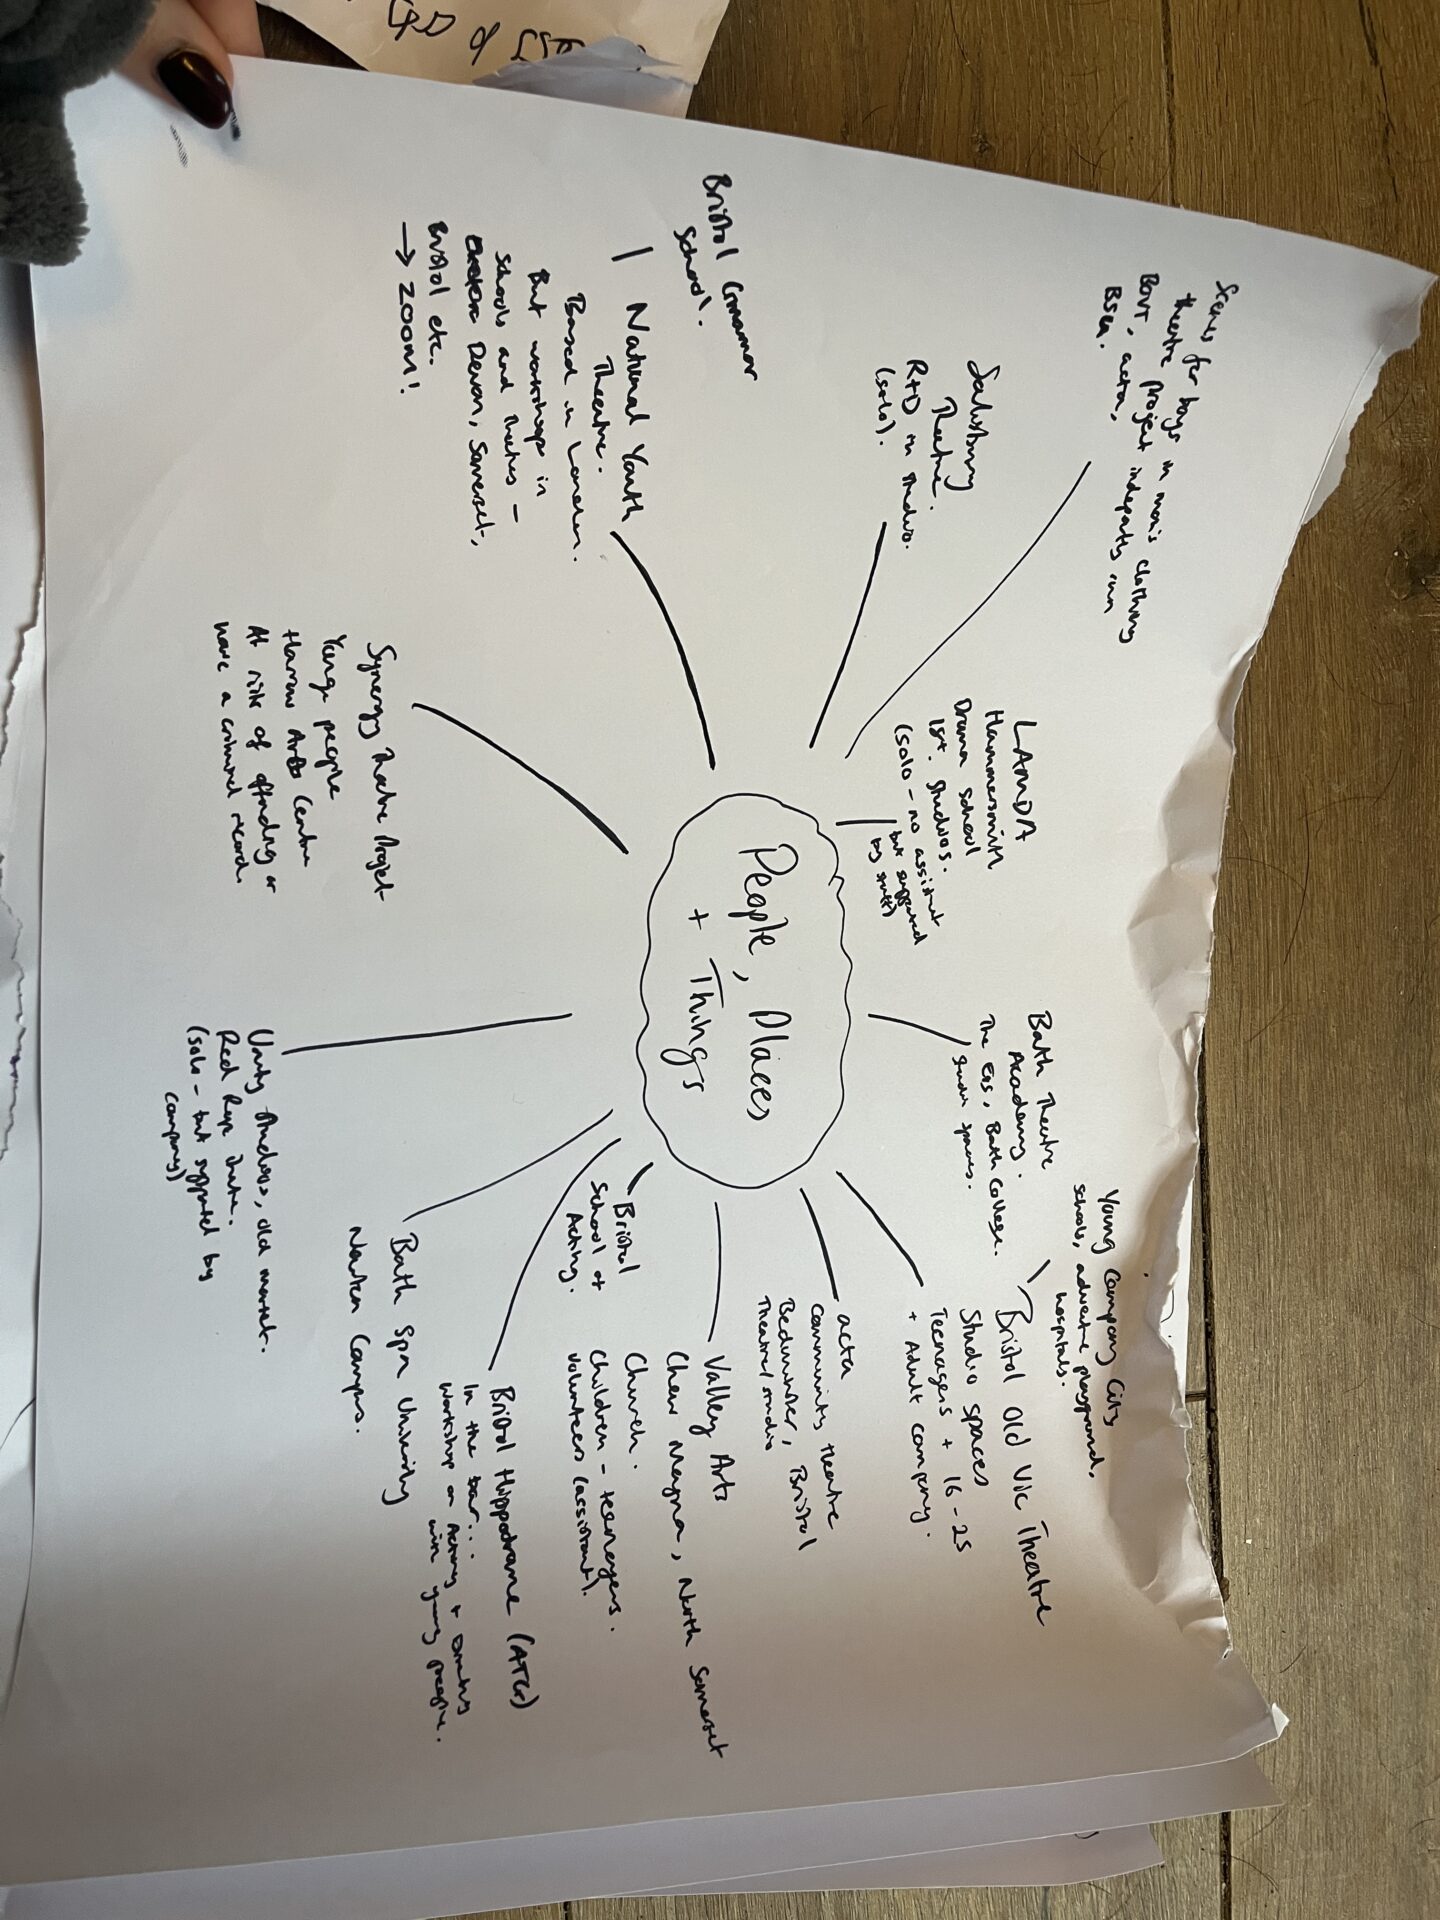 People, Places
+ Things
Scenes for boys in men's clothing
theatre project
BOVT, acta, run
BSU.
Salisbury
Theatre.
R+D in studio.
(solo).
LAMDA
Hammersmith
Drama School
1st. Studios.
(solo - no assistant
but supported
by staff)
Bath Theatre
Academy.
The Egg, Bath College.
studio spaces.
Young Company City
schools, adventure playground,
hospitals.
Bristol Old Vic Theatre
Studio spaces
Teenagers + 16-25
+ Adult company.
acta
community theatre
Bedminster, Bristol
Theatre/studio
Valley Arts
Chew Magna, North Somerset
Church.
Children - teenagers.
volunteers (assistant).
Bristol
School of
Acting.
Bristol Hippodrome (ATG)
In the bar...
workshop on Acting +
with young people.
Bath Spa University
Newton Campus.
Unity Studios, old market.
Red Rope Theatre.
(solo - but supported by
company)
Synergy Theatre Project
Young people
Harrow Arts Centre
At risk of offending or
have a criminal record.
National Youth
Theatre.
Based in London.
But workshops in
schools and theatres -
Devon, Somerset,
Bristol etc.
→ ZOOM!
Bristol Grammar
School.